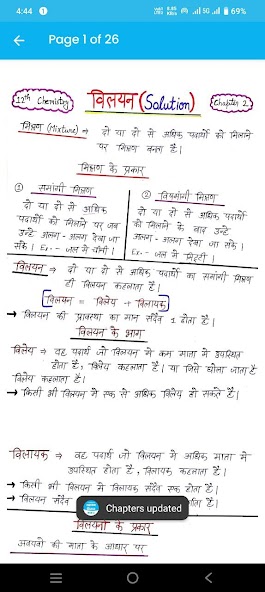 4:44
69%
Page 1 of 26
12th Chemistry
विलयन (Solution)
Chapter 2
मिश्रण (Mixture) ⇒ दो या दो से अधिक पदार्थो को मिलाने
पर मिश्रण बनता है।
मिश्रण के प्रकार
① समांगी मिश्रण
दो या दो से अधिक
पदार्थो को मिलाने पर जब
उन्हें अलग-अलग देखा जा
सके। Ex.- जल में चीनी।
② विषमांगी मिश्रण
दो या दो से अधिक पदार्थो
को मिलाने के बाद उन्हें
अलग-अलग देखा जा सके।
Ex.- जल में मिट्टी।
विलयन ⇒ दो या दो से अधिक पदार्थो का समांगी मिश्रण
ही विलयन कहलाता है।
विलयन = विलेय + विलायक
→ विलयन की प्रावस्था का मान सदैव 1 होता है।
विलयन के भाग
विलेय ⇒ वह पदार्थ जो विलयन में कम मात्रा में उपस्थित
होता है, विलेय कहलाता है। या जिसे घोला जाता है
विलेय कहलाता है।
→ किसी भी विलयन में एक से अधिक विलेय हो सकते हैं।
विलायक ⇒ वह पदार्थ जो विलयन में अधिक मात्रा में
उपस्थित होता है, विलायक कहलाता है।
→ किसी भी विलयन में विलायक सदैव एक होता है।
→ विलयन सदैव
लाता है।
Chapters updated
विलयनों के प्रकार
अवयवो की मात्रा के आधार पर